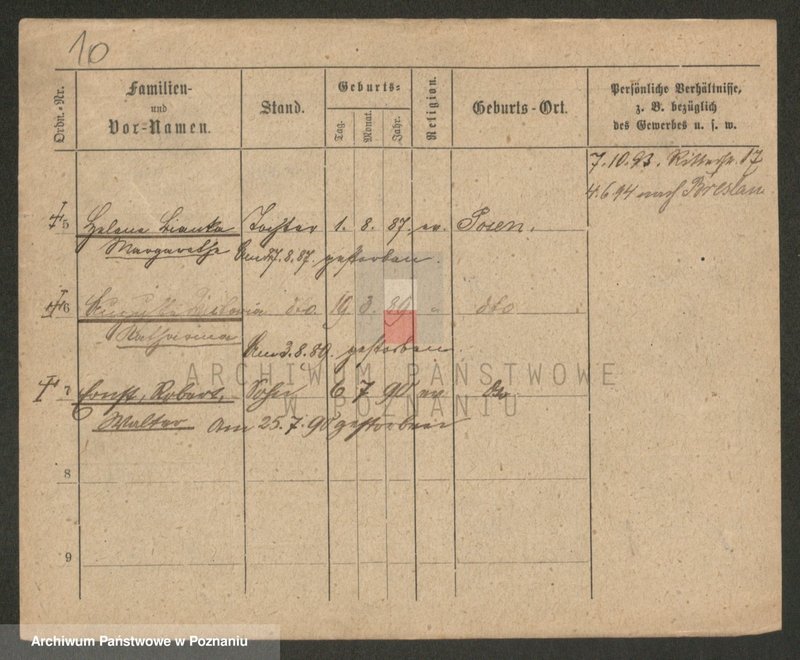 10
Ordn.-Nr.
Familien-
und
Vor-Namen.
Stand.
Geburts-
Tag.
Monat.
Jahr.
Religion.
Geburts-Ort.
Persönliche Verhältnisse,
z. B. bezüglich
des Gewerbes u. s. w.
7.10.93. 17
4.6.94 nach Breslau.
5 Helene Bianka Tochter 1. 8. 87. ev. Posen.
Margarethe Am 27.8.87. gestorben.
6 dto. 19 3. 89 " dto
Katharina
Am 3.8.89. gestorben.
7 Ernst, Robert, Sohn 6 7 90 ev dto
Walter Am 25.7.90 gestorben
8
9
ARCHIWUM PAŃSTWOWE
W POZNANIU
Archiwum Państwowe w Poznaniu